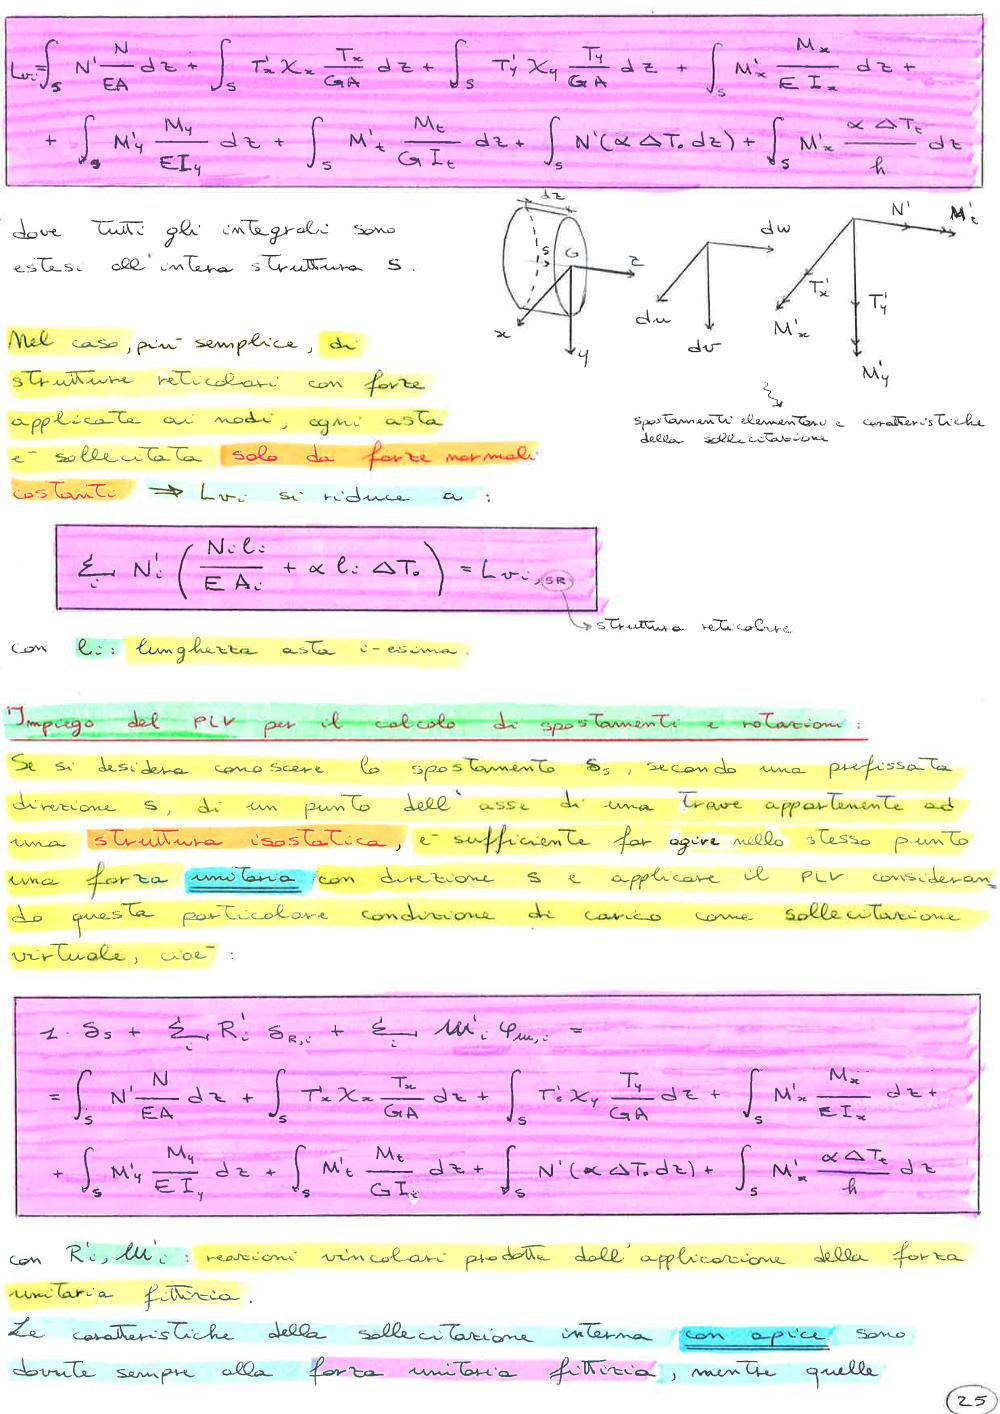 Lvi = ∫s N' N/EA dz + ∫s T'x χx Tx/GA dz + ∫s T'y χy Ty/GA dz + ∫s M'x Mx/EIx dz +
+ ∫s M'y My/EIy dz + ∫s M't Mt/GIt dz + ∫s N'(α ΔT₀ dz) + ∫s M'x αΔTt/h dz
dove tutti gli integrali sono
estesi all'intera struttura S.
dz
s
G
z
x
y
dw
du
dv
N'
M't
T'x
T'y
M'x
M'y
spostamenti elementari e caratteristiche
della sollecitazione
Nel caso, più semplice, di
strutture reticolari con forze
applicate ai nodi, ogni asta
è sollecitata solo da forze normali
costanti ⇒ Lvi si riduce a:
Σi N'i (Ni li / E Ai + α li ΔT₀) = Lvi, SR
struttura reticolare
con li: lunghezza asta i-esima.
Impiego del PLV per il calcolo di spostamenti e rotazioni:
Se si desidera conoscere lo spostamento δs, secondo una prefissata
direzione s, di un punto dell'asse di una trave appartenente ad
una struttura isostatica, è sufficiente far agire nello stesso punto
una forza unitaria con direzione s e applicare il PLV consideran=
do questa particolare condizione di carico come sollecitazione
virtuale, cioè:
1 · δs + Σi R'i δR,i + Σi M'i φm,i =
= ∫s N' N/EA dz + ∫s T'x χx Tx/GA dz + ∫s T's χy Ty/GA dz + ∫s M'x Mx/EIx dz +
+ ∫s M'y My/EIy dz + ∫s M't Mt/GIt dz + ∫s N'(α ΔT₀ dz) + ∫s M'x αΔTt/h dz
con R'i, M'i: reazioni vincolari prodotte dall'applicazione della forza
unitaria fittizia.
Le caratteristiche della sollecitazione interna con apice sono
dovute sempre alla forza unitaria fittizia, mentre quelle
25